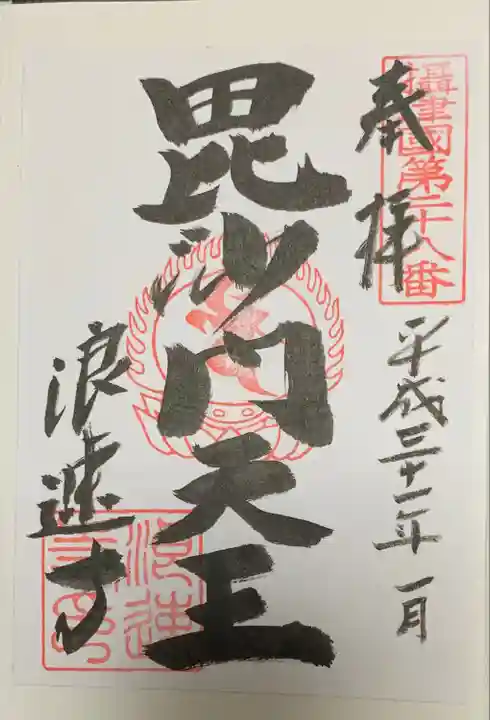 攝津國第三十八番
奉拝
平成三十一年一月
毘沙門天王
浪速寺